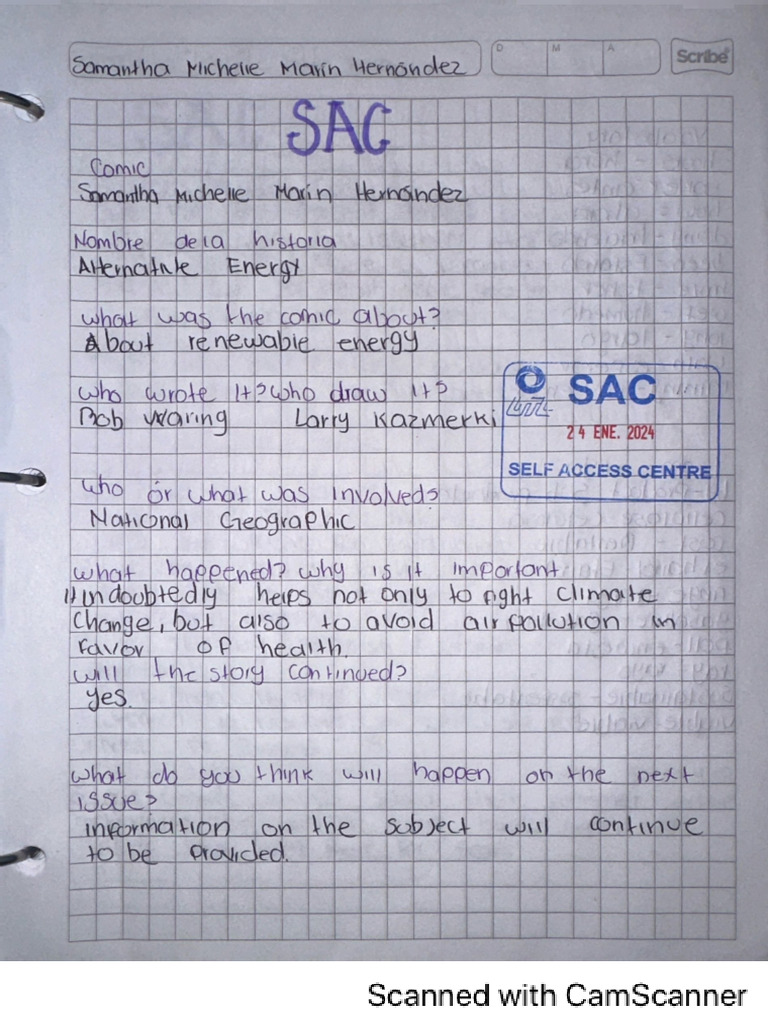 Samantha Michelle Marín Hernández
D M A
Scribe
SAC
Comic
Samantha Michelle Marín Hernández
Nombre dela historia
Alternative Energy
what was the comic about?
About renewable energy
who wrote it? who draw it?
Bob Waring Larry Kazmerki
SAC
24 ENE. 2024
SELF ACCESS CENTRE
who or what was involved?
National Geographic
what happened? why is it important
it undoubtedly helps not only to fight climate
change, but also to avoid air pollution in
favor of health.
will the story continued?
yes.
what do you think will happen on the next
issue?
information on the subject will continue
to be provided.
Scanned with CamScanner